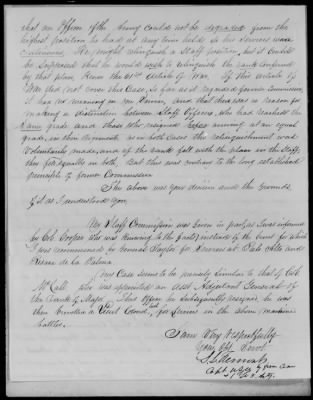 that an Officer of the Army could not be degraded from the
highest position he had at any time held, if his services were
continuous. He might relinquish a Staff position, but it could not
be supposed that he would wish to relinquish the rank conferred
by that place, Hence the 61st Article of War. If this article of
War did not cover this Case, so far as it regarded former Commissions,
it had no meaning or Force, and that there was no reason for
making a distinction between Staff Officers, who had reached the
same grade and those who never arrived at an equal
grade, in their Regiments as in both cases the relinquishment was
Voluntarily made, and if the rank fell with the place in the Staff,
they fell equally in both. But this was contrary to the long established
principle of former Commissions
The above was your decision and the grounds
of it as I understand you.
My Staff Commission was given in part, as I was informed
by Col. Cooper who was knowing to the facts, instead of the brevet for which
I was recommended by General Taylor for services at Palo Alto and
Resaca de la Palma.
My Case seems to be precisely similar to that of Col.
McCall who was appointed an asst Adjutant General of
the Rank of Major. This Office he subsequently resigned, he was
then brevetted a Lieut Colonel, for services in the above
battles.
I am Very Respectfully
Your Obt Servt.